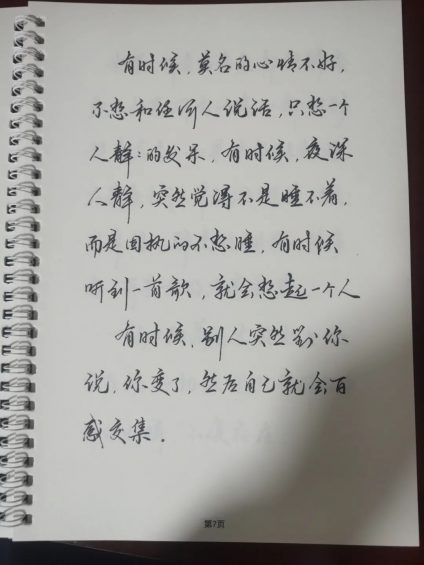 有时候,莫名的心情不好,
不想和任何人说话,只想一个
人静静的发呆,有时候,夜深
人静,突然觉得不是睡不着,
而是固执的不想睡,有时候
听到一首歌,就会想起一个人
有时候,别人突然对你
说,你变了,然后自己就会百
感交集.
第7页